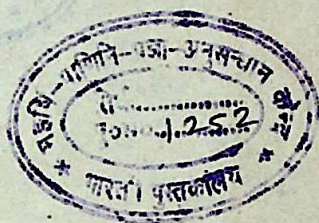 महर्षि-पाणिनि-प्रज्ञा-अनुसन्धान
1252
* भारती पुस्तकालय *